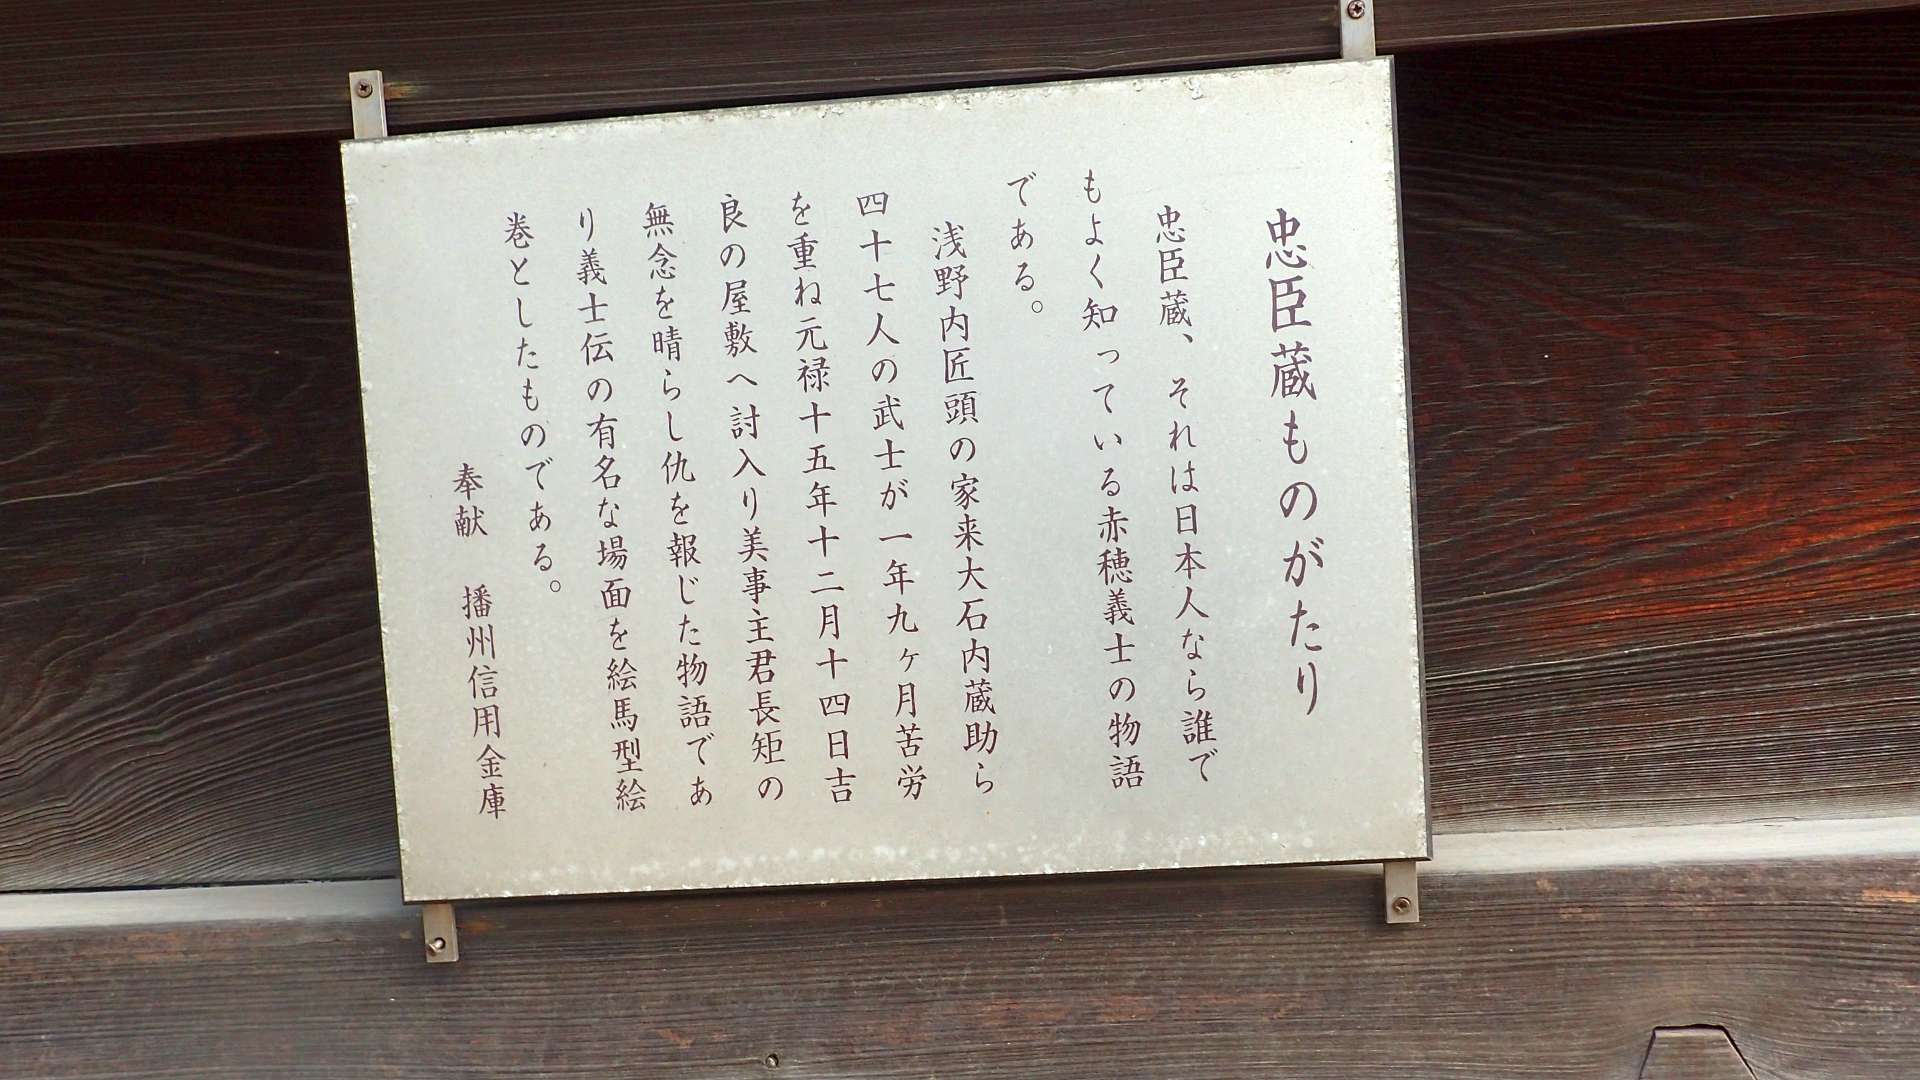 忠臣蔵ものがたり
忠臣蔵、それは日本人なら誰で
もよく知っている赤穂義士の物語
である。
浅野内匠頭の家来大石内蔵助ら
四十七人の武士が一年九ヶ月苦労
を重ね元禄十五年十二月十四日吉
良の屋敷へ討入り美事主君長矩の
無念を晴らし仇を報じた物語であ
り義士伝の有名な場面を絵馬型絵
巻としたものである。
奉献 播州信用金庫